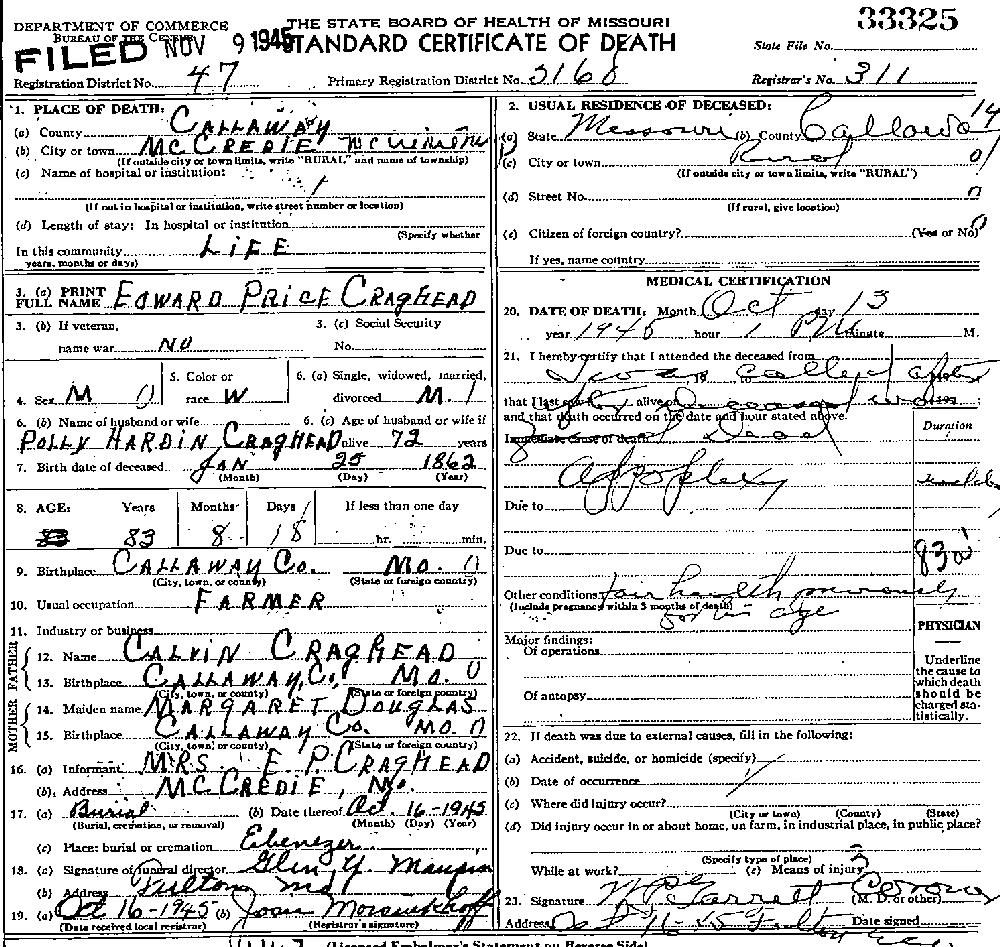 33325
DEPARTMENT OF COMMERCE
BUREAU OF THE CENSUS
THE STATE BOARD OF HEALTH OF MISSOURI
FILED NOV 9 1945
STANDARD CERTIFICATE OF DEATH
State File No.
Registration District No. 47
Primary Registration District No. 3168
Registrar's No. 311
1. PLACE OF DEATH:
(a) County CALLAWAY
(b) City or town MC CREDIE
(If outside city or town limits, write "RURAL," and name of township)
(c) Name of hospital or institution:
(If not in hospital or institution, write street number or location)
(d) Length of stay: In hospital or institution
(Specify whether
In this community LIFE
years, months or days)
2. USUAL RESIDENCE OF DECEASED:
(a) State Missouri (b) County Callaway 14
(c) City or town Rural 0
(If outside city or town limits, write "RURAL")
(d) Street No. 0
(If rural, give location)
(e) Citizen of foreign country? (Yes or No)
If yes, name country
3. (a) PRINT FULL NAME EDWARD PRICE CRAGHEAD
3. (b) If veteran, name war NO
3. (c) Social Security No.
4. Sex M
5. Color or race W
6. (a) Single, widowed, married, divorced M. 1
6. (b) Name of husband or wife
POLLY HARDIN CRAGHEAD
6. (c) Age of husband or wife if alive 72 years
7. Birth date of deceased JAN 25 1862
(Month) (Day) (Year)
8. AGE: Years Months Days If less than one day
83 83 8 18 hr. min.
9. Birthplace CALLAWAY CO. MO. 0
(City, town, or county) (State or foreign country)
10. Usual occupation FARMER
11. Industry or business
FATHER
12. Name CALVIN CRAGHEAD
13. Birthplace CALLAWAY CO. MO. 0
(City, town, or county) (State or foreign country)
MOTHER
14. Maiden name MARGARET DOUGLAS
15. Birthplace CALLAWAY CO. MO. 0
(City, town, or county) (State or foreign country)
16. (a) Informant MRS. E P. CRAGHEAD
(b) Address MC CREDIE, MO.
17. (a) Burial (b) Date thereof Oct. 16-1945
(Burial, cremation, or removal) (Month) (Day) (Year)
(c) Place: burial or cremation Ebenezer
18. (a) Signature of funeral director Glen Y. Maupin
(b) Address Fulton Mo
19. (a) Oct 16-1945 (b) Joan
(Date received local registrar) (Registrar's signature)
MEDICAL CERTIFICATION
20. DATE OF DEATH: Month Oct day 13
year 1945 hour 1 PM minute M.
21. I hereby certify that I attended the deceased from
I was called after
that I last saw alive on
and that death occurred on the date and hour stated above.
Duration
Immediate cause of death Dead
Apoplexy
Due to
Due to
830
Other conditions fair health previously
(Include pregnancy within 3 months of death)
for his age
PHYSICIAN
Major findings:
Of operations
Of autopsy
Underline the cause to which death should be charged statistically.
22. If death was due to external causes, fill in the following:
(a) Accident, suicide, or homicide (specify)
(b) Date of occurrence
(c) Where did injury occur?
(City or town) (County) (State)
(d) Did injury occur in or about home, on farm, in industrial place, in public place?
(Specify type of place)
While at work? (e) Means of injury
23. Signature Garrett Corona
(M. D. or other)
Address Fulton Date signed
(Licensed Embalmer's Statement on Reverse Side)